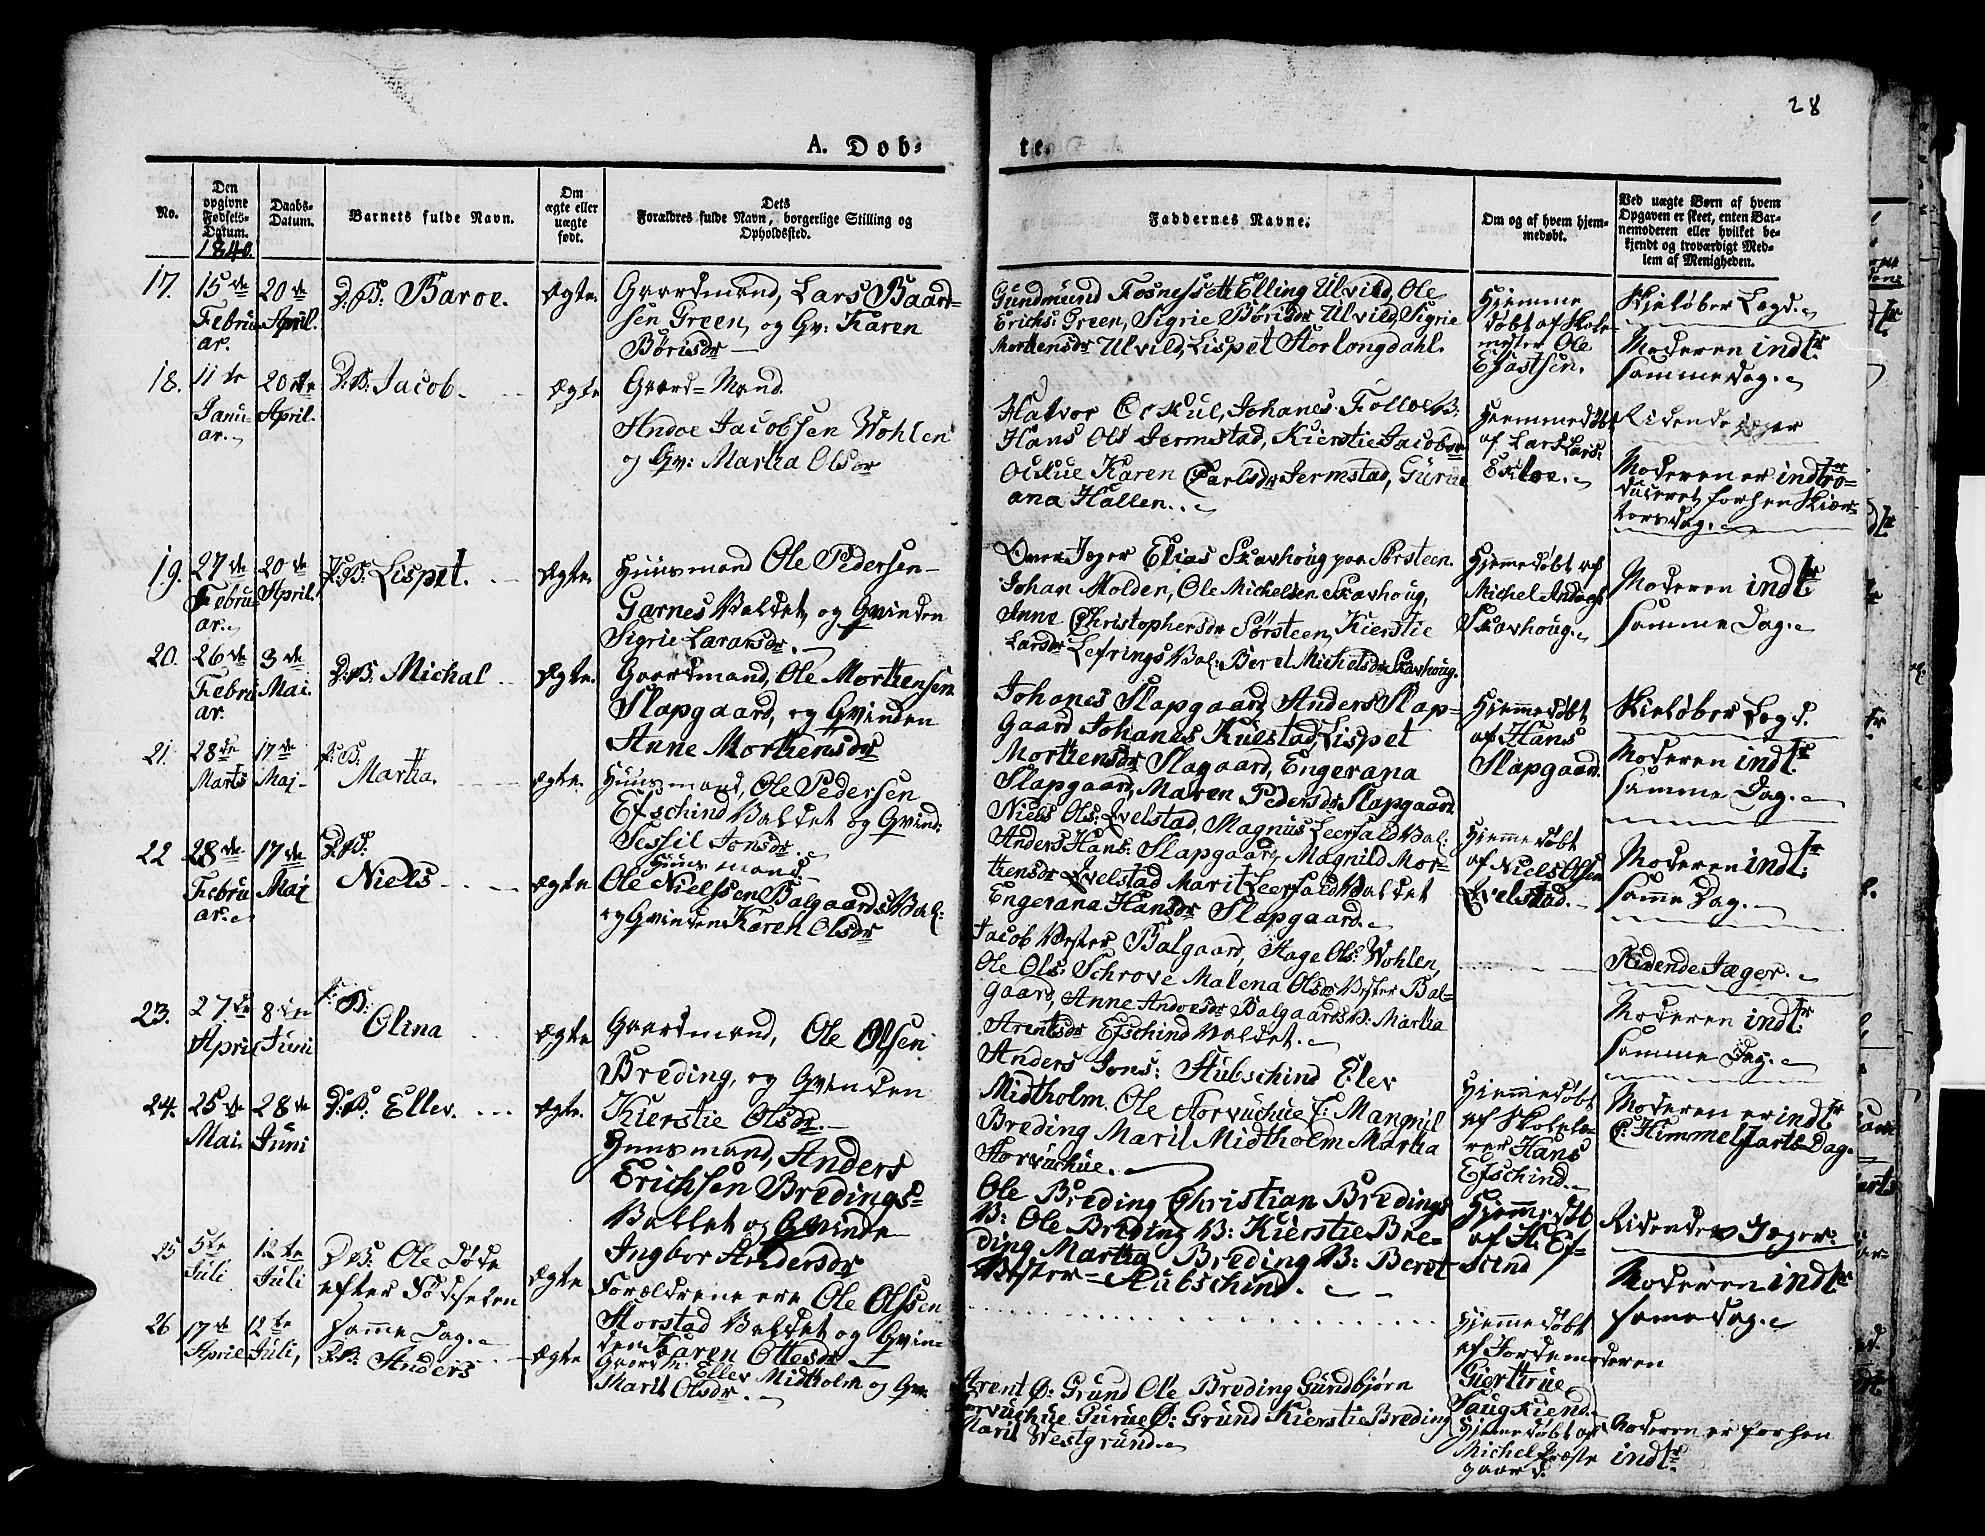 28
A. Døb-
te.
No.
Den
opgivne
Fødsels-
Datum.
1840.
Daabs-
Datum.
Barnets fulde Navn.
Om
ægte eller
uægte
født.
Dets
Forældres fulde Navn, borgerlige Stilling og
Opholdssted.
Faddernes Navne.
Om og af hvem hjem-
medøbt.
Ved uægte Børn af hvem
Opgaven er skeet, enten Bar-
nemoderen eller hvilket be-
kjendt og troværdigt Med-
lem af Menigheden.
17.
15de
Febru
ar.
20de
April.
D.B. Baroe.
Ægte.
Gaardmand, Lars Baard-
sen Green, og Qv: Karen
Börisdr
Gundmund Fosnessett Elling Ulvild, Ole
Erichs: Green, Sigrie Börisdr Ulvild, Sigrie
Morthensdr Ulvild, Lispet Storlongdahl.
Hjemme
döbt af Skole-
mester Ole
Efastsen.
Skielöber Legd.
Moderen indtr
sammedag.
18.
11te
Janu
ar.
20de
April.
D.B. Jacob
Ægte
Gaard-Mand.
Andoe Jacobsen Wohlen
og Qv: Martha Olsdr
Halvor Oc Kul, Johanes Folloe B:
Hans Ols Sermstad, Kierstie Jacobsdr
Karen Carlsdr Sermstad, Gurue
ana Hallen.
Hjemmedöbt
af Lars Lars:
Ekloe.
Ridende Jæger
Moderen er indtro-
duceret forhen Skiær-
torsdag.
19.
27de
Febru
ar.
20de
April.
D.B. Lispet.
Ægte.
Huusmand Ole Pedersen
Garnes Valdet, og Qvinden
Sigrie Larsdr.
Elias Skavhoug paa Sörsteen.
Johan Molden, Ole Michelsen Skavhoug,
Anne Christophersdr Sörsteen, Kierstie
Larsdr Lefrings Val: Beret Michelsdr Skavhoug.
Hjemmedöbt af
Michel Andoes
Skavhoug.
Moderen indtr
samme Dag.
20.
26de
Febru
ar.
3de
Mai.
D.B. Michal
Ægte.
Gaardmand, Ole Morthensen
Slapgaard, og Qvinden
Anne Morthensdr
Johanes Slapgaard, Anders Slap-
gaard Johanes Kulstad, Lispet
Morthensdr Slagaard, Engerana
Slapgaard, Maren Pedersdr Slapgaard.
Hjemmedöbt
af Hans
Slapgaard.
Skielöber Legd.
Moderen indtr
samme Dag.
21.
28de
Marts
17de
Maj.
D.B.
Martha.
Ægte.
Huusmand, Ole Pedersen
Efschind Valdet og Qvind:
Sessil Jonsdr.
Niels Ols: Qvelstad, Magnus Leerfald Val:
Anders Hans: Slapgaard, Magnild Mor-
thensdr Qvelstad Marit Leerfald Valdet
Engerana Hansdr Slapgaard.
Hjemmedöbt
af Niels Olsen
Qvelstad.
Moderen indtr
samme Dag.
22
28de
Febru
ar.
17de
Maj
D.B.
Niels
Ægte
Huusmand
Ole Nielssen Balgaards Val:
og Qvinden Karen Olsdr
Jacob Vester Balgaard, Hage Ols: Wohlen,
Ole Ols: Schrove Malena Olsdr Vester Bal-
gaard, Anne Andoesdr Balgaards V: Martha
Arentsdr Efschind Valdet.
Ridende Jæger.
Moderen indtr
samme Dag.
23.
27de
April
8de
Juni
D.B.
Olina
Ægte
Gaardmand, Ole Olsen
Breding, og Qvinden
Kierstie Olsdr.
Anders Jons: Stubschind Elev
Midtholm. Ole Storvuchue E: Mangnil
Breding Marit Midtholm Martha
Storvuchue.
Hjemmedöbt
af Skolelæ-
rer Hans
Efschind.
Moderen er indtr
C: Himmelfarts Dag.
24.
25de
Mai.
28de
Juni
D.B. Ellev.
Ægte.
Huusmand, Anders
Erichsen Bredings-
Vallet og Qvinde
Ingbor Andersdr
Ole Breding Christian Bredings
V: Ole Breding V: Kierstie Bre-
ding Martha Breding V: Beret
Vester Stubschind.
Hjemmedöbt
af H. Ef-
scind
Ridende Jæger:
Moderen indtr
samedag.
25
5te
Juli
12te
Juli
D.B: Ole Döde
efter Födselen
samme Dag.
Ægte
Forældrene ere Ole Olssen
Storstad Valdet og Qvin-
den Karen Ottesdr
Hjemmedöbt
af Jordemoderen
Giertrue
Saugkiend.
26
17de
April
12te
Juli,
D.B. Anders
Ægte
Gaardm. Ellev Midtholm og Qv:
Marit Olsdr.
Arent Ö: Grund Ole Breding Gundbjörn
Storvuchue Gurue Ö: Grund Kierstie Breding
Marit Vestgrund.
Hjemmedöbt af
Michel Præste
gaard.
Moderen er forhen
indtr.